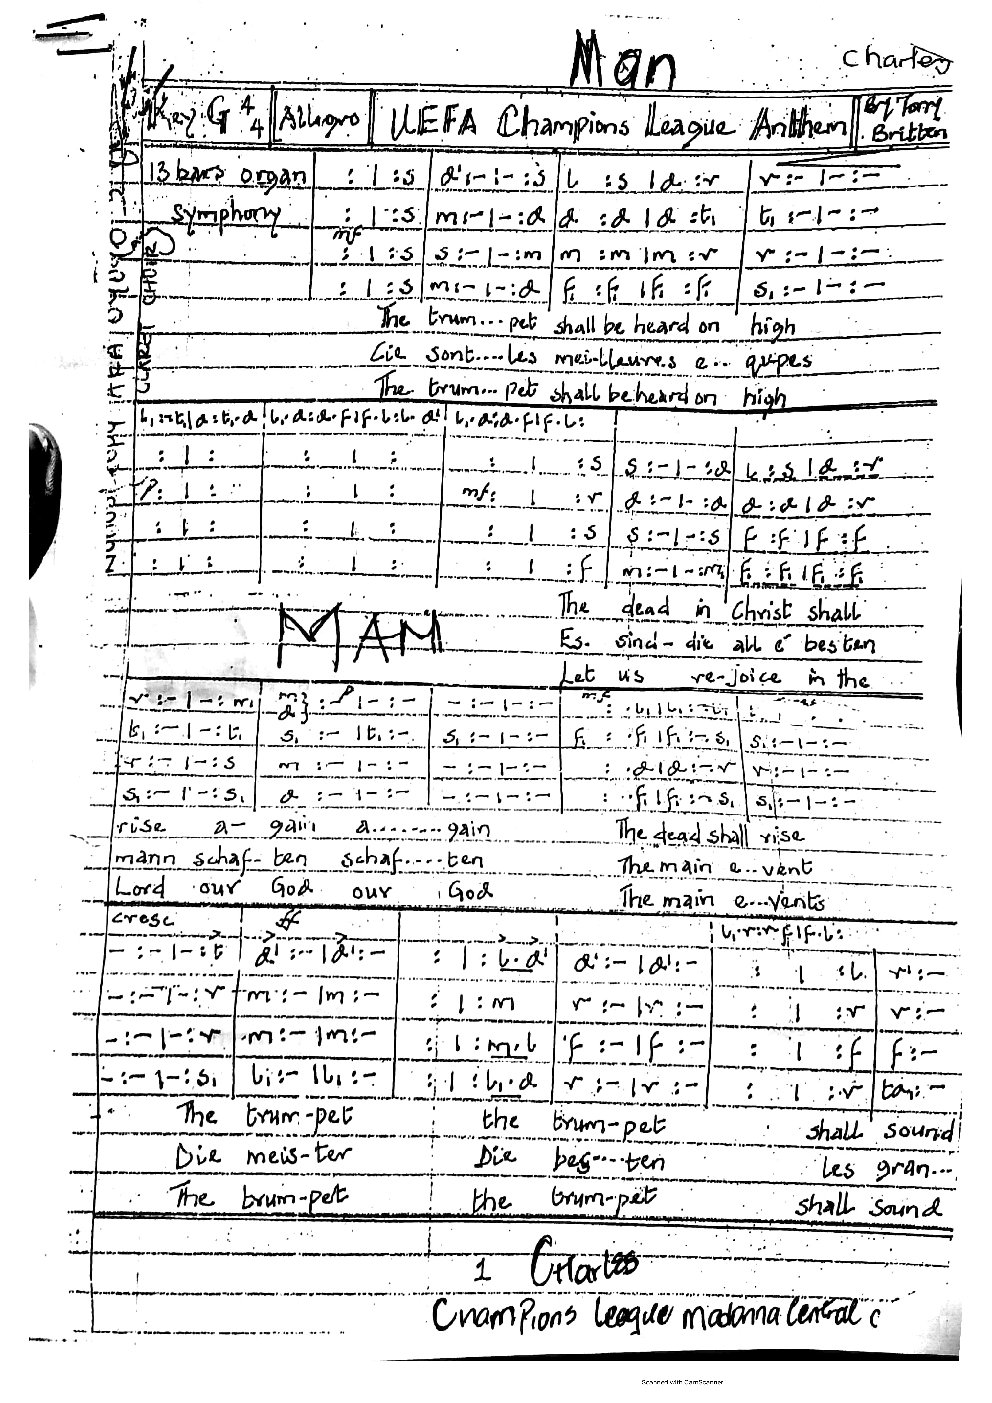 Man
Charles
Key G 4/4 Allegro UEFA Champions League Anthem By Tony Britten
13 bars organ : | :s d':-|-:s l :s |d :r r :-|-:-
symphony : | :s m:-|-:d d :d |d :t₁ t₁ :-|-:-
mf
: | :s s:-|-:m m :m |m :r r :-|-:-
: | :s m:-|-:d f₁ :f₁ |f₁ :f₁ s₁ :-|-:-
The trum... pet shall be heard on high
Cie sont....les mei-lleures e... qupes
The trum... pet shall be heard on high
CLARET CHOIR
: | : : | : : | :s s:-|-:d l :s |d :r
p: | : : | : mf: | :r d:-|-:d d :d |d :r
: | : : | : : | :s s:-|-:s f :f |f :f
: | : : | : : | :f m:-|-:m₁ f₁ :f₁ |f₁ :f₁
The dead in Christ shall
MAM
Es. sind- die all e besten
Let us re-joice in the
t₁:-|-:t₁ s₁ :-|t₁:- s₁:-|-:- f₁ : .f₁|f₁:-.s₁ s₁:-|-:-
r:-|-:s m :-|-:- -:-|-:- : .d|d:-.r r:-|-:-
s₁:-|-:s₁ d :-|-:- -:-|-:- : .f₁|f₁:-.s₁ s₁:-|-:-
rise a- gain a........gain The dead shall rise
mann schaf- ten schaf.....ten The main e...vent
Lord our God our God The main e...vents
cresc ff
-:-|-:t d':-|d':- : | :l.d' d':-|d':- : | :l r':-
-:-|-:r m:-|m:- : | :m r:-|r:- : | :r r:-
-:-|-:r m:-|m:- : | :m.l f:-|f:- : | :f f:-
-:-|-:s₁ l₁:-|l₁:- : | :l₁.d r:-|r:- : | :r ta₁:-
The trum-pet the trum-pet shall sound
Die meis-ter Die beg....ten les gran...
The trum-pet the trum-pet shall sound
1 Charles
Champions League madonna Central c
Scanned with CamScanner